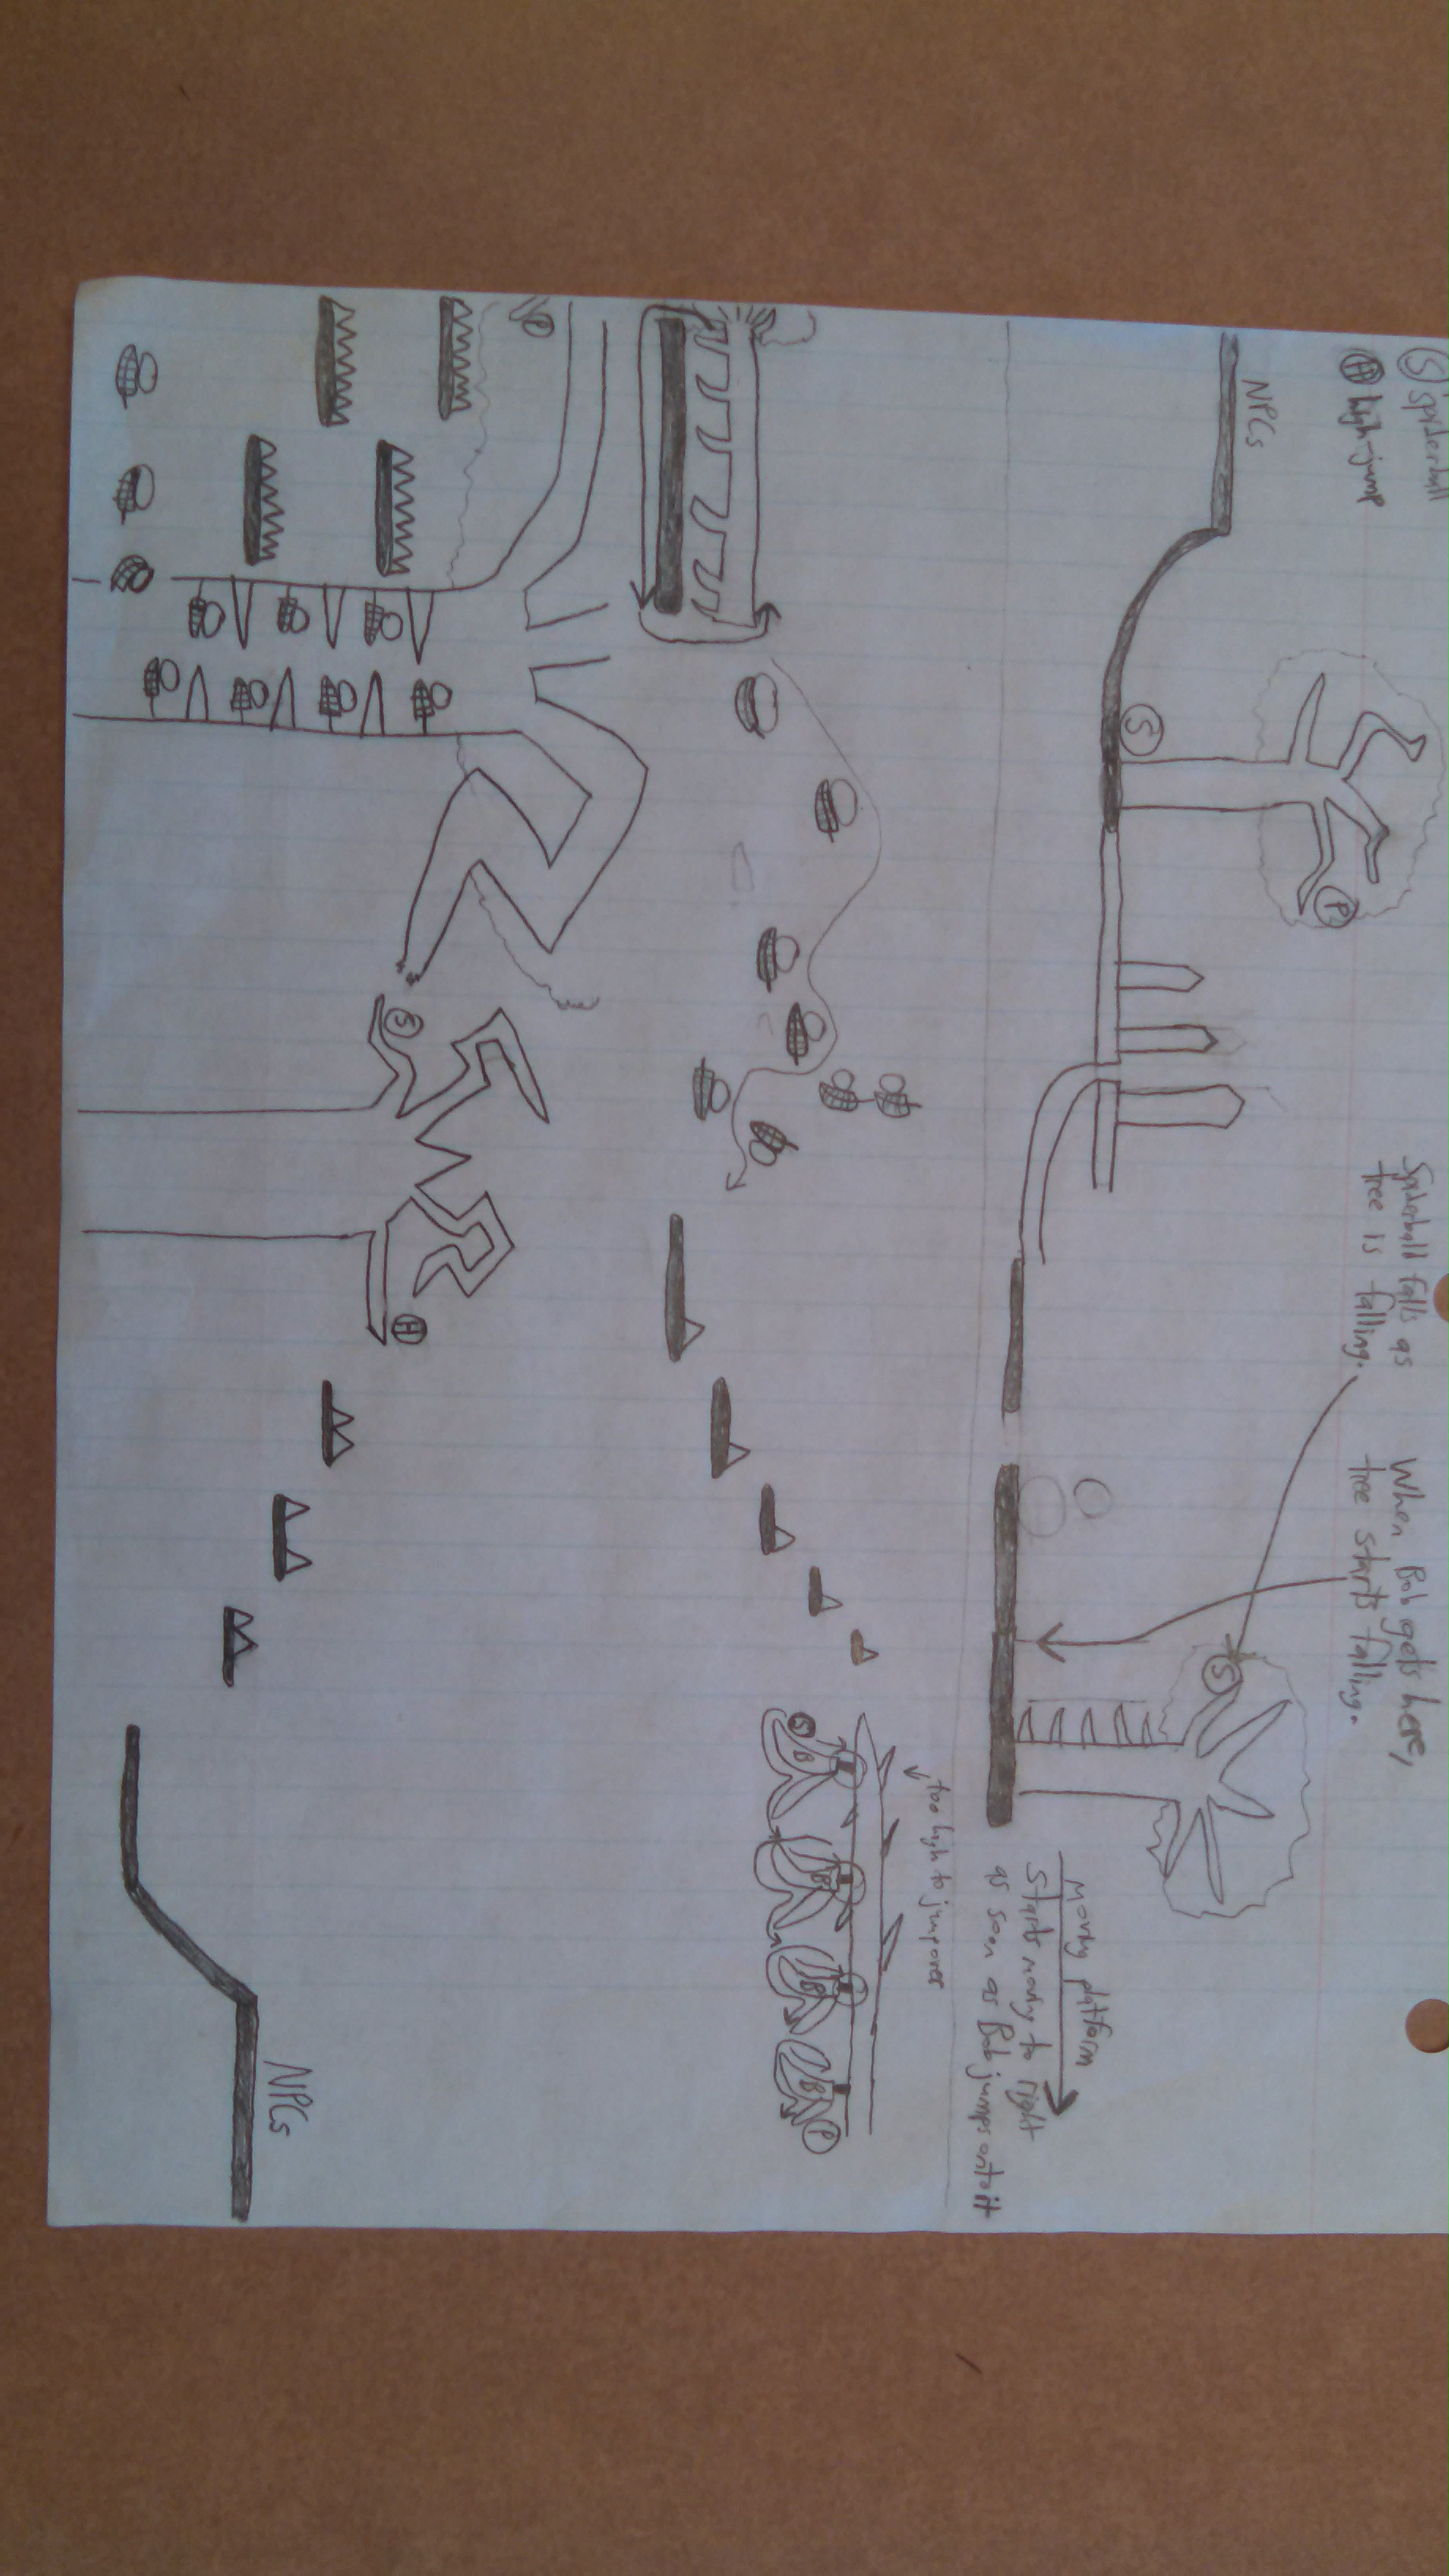 S spiderball
H high-jump
NPCs
S
P
Spiderball falls as
tree is falling.
When Bob gets here,
tree starts falling.
S
moving platform
starts moving to right
as soon as Bob jumps onto it
too high to jump over
S
B
B
B
B
P
P
S
H
NPCs